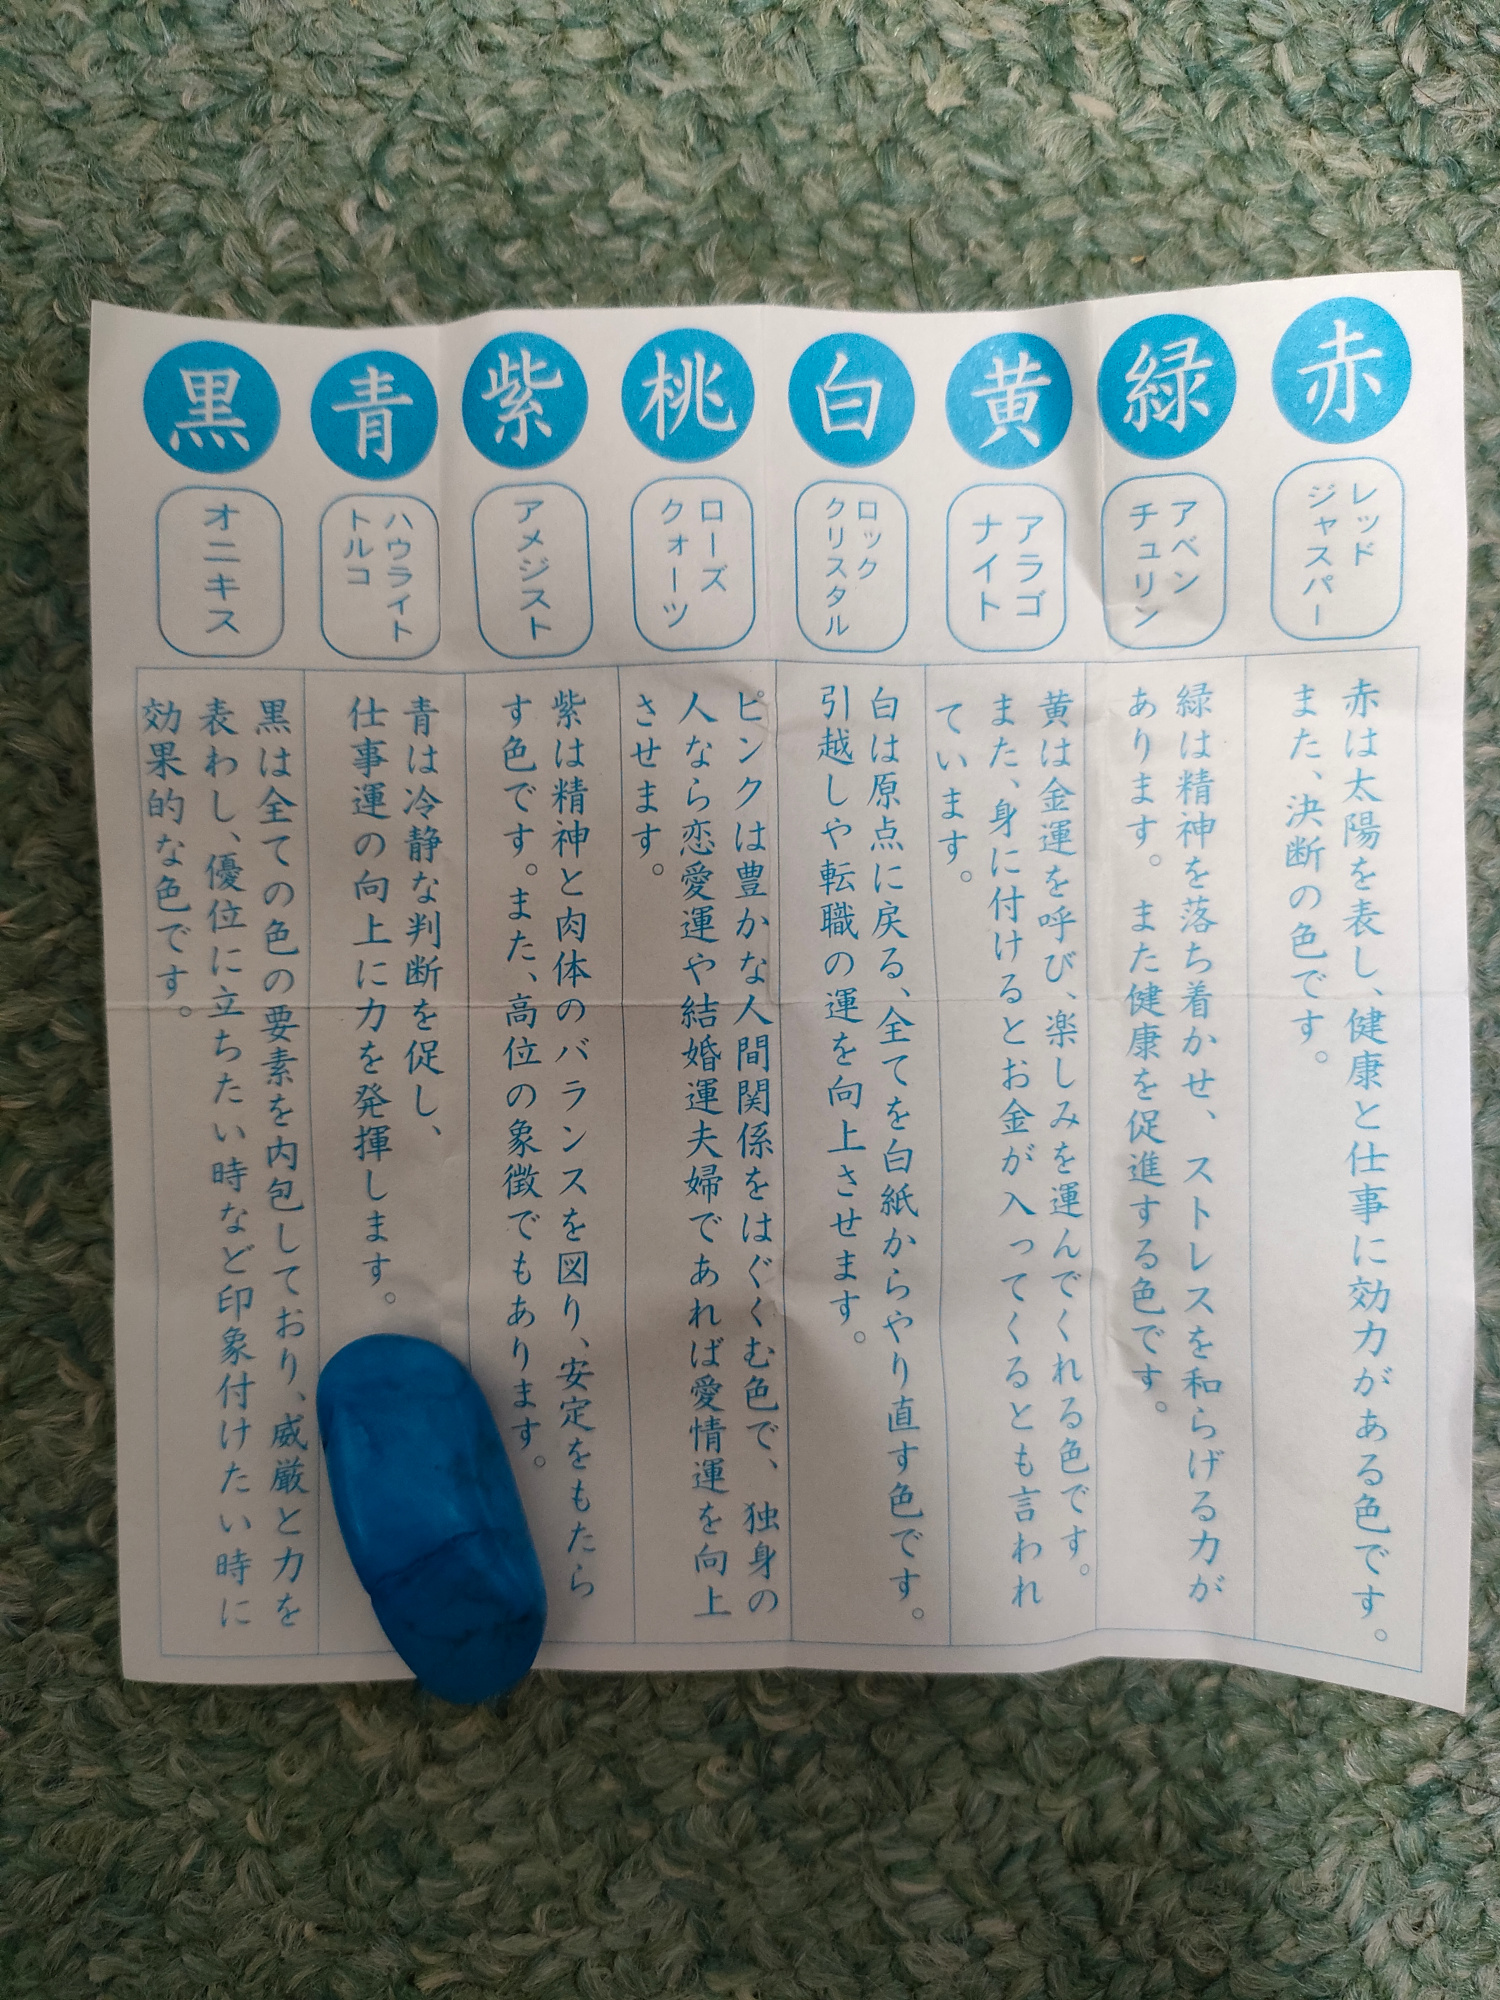 赤
レッド
ジャスパー
赤は太陽を表し、健康と仕事に効力がある色です。
また、決断の色です。
緑
アベン
チュリン
緑は精神を落ち着かせ、ストレスを和らげる力が
あります。また健康を促進する色です。
黄
アラゴ
ナイト
黄は金運を呼び、楽しみを運んでくれる色です。
また、身に付けるとお金が入ってくるとも言われ
ています。
白
ロック
クリスタル
白は原点に戻る、全てを白紙からやり直す色です。
引越しや転職の運を向上させます。
桃
ローズ
クォーツ
ピンクは豊かな人間関係をはぐくむ色で、独身の
人なら恋愛運や結婚運夫婦であれば愛情運を向上
させます。
紫
アメジスト
紫は精神と肉体のバランスを図り、安定をもたら
す色です。また、高位の象徴でもあります。
青
ハウライト
トルコ
青は冷静な判断を促し、
仕事運の向上に力を発揮します。
黒
オニキス
黒は全ての色の要素を内包しており、威厳と力を
表わし、優位に立ちたい時など印象付けたい時に
効果的な色です。